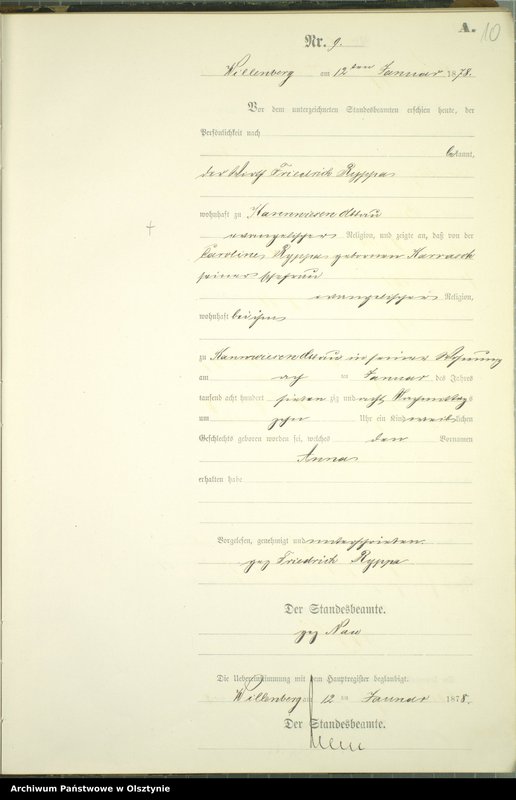 A. 10
Nr. 9.
Willenberg am 12ten Januar 1878.
Vor dem unterzeichneten Standesbeamten erschien heute, der
Persönlichkeit nach
bekannt,
der Friedrich Ryppa
wohnhaft zu
evangelischer Religion, und zeigte an, daß von der
Caroline Ryppa geborenen Karrasch
seiner Ehefrau
evangelischer Religion,
wohnhaft bei ihm
zu in seiner Wohnung
am ach ten Januar des Jahres
tausend acht hundert sieben zig und acht, Vormittags
um zehn Uhr ein Kind weiblichen
Geschlechts geboren worden sei, welches den Vornamen
Anna
erhalten habe
Vorgelesen, genehmigt und unterschrieben.
gez Friedrich Ryppa
Der Standesbeamte.
gez
Die Uebereinstimmung mit dem Hauptregister beglaubigt.
Willenberg am 12 ten Januar 1878.
Der Standesbeamte.
Archiwum Państwowe w Olsztynie